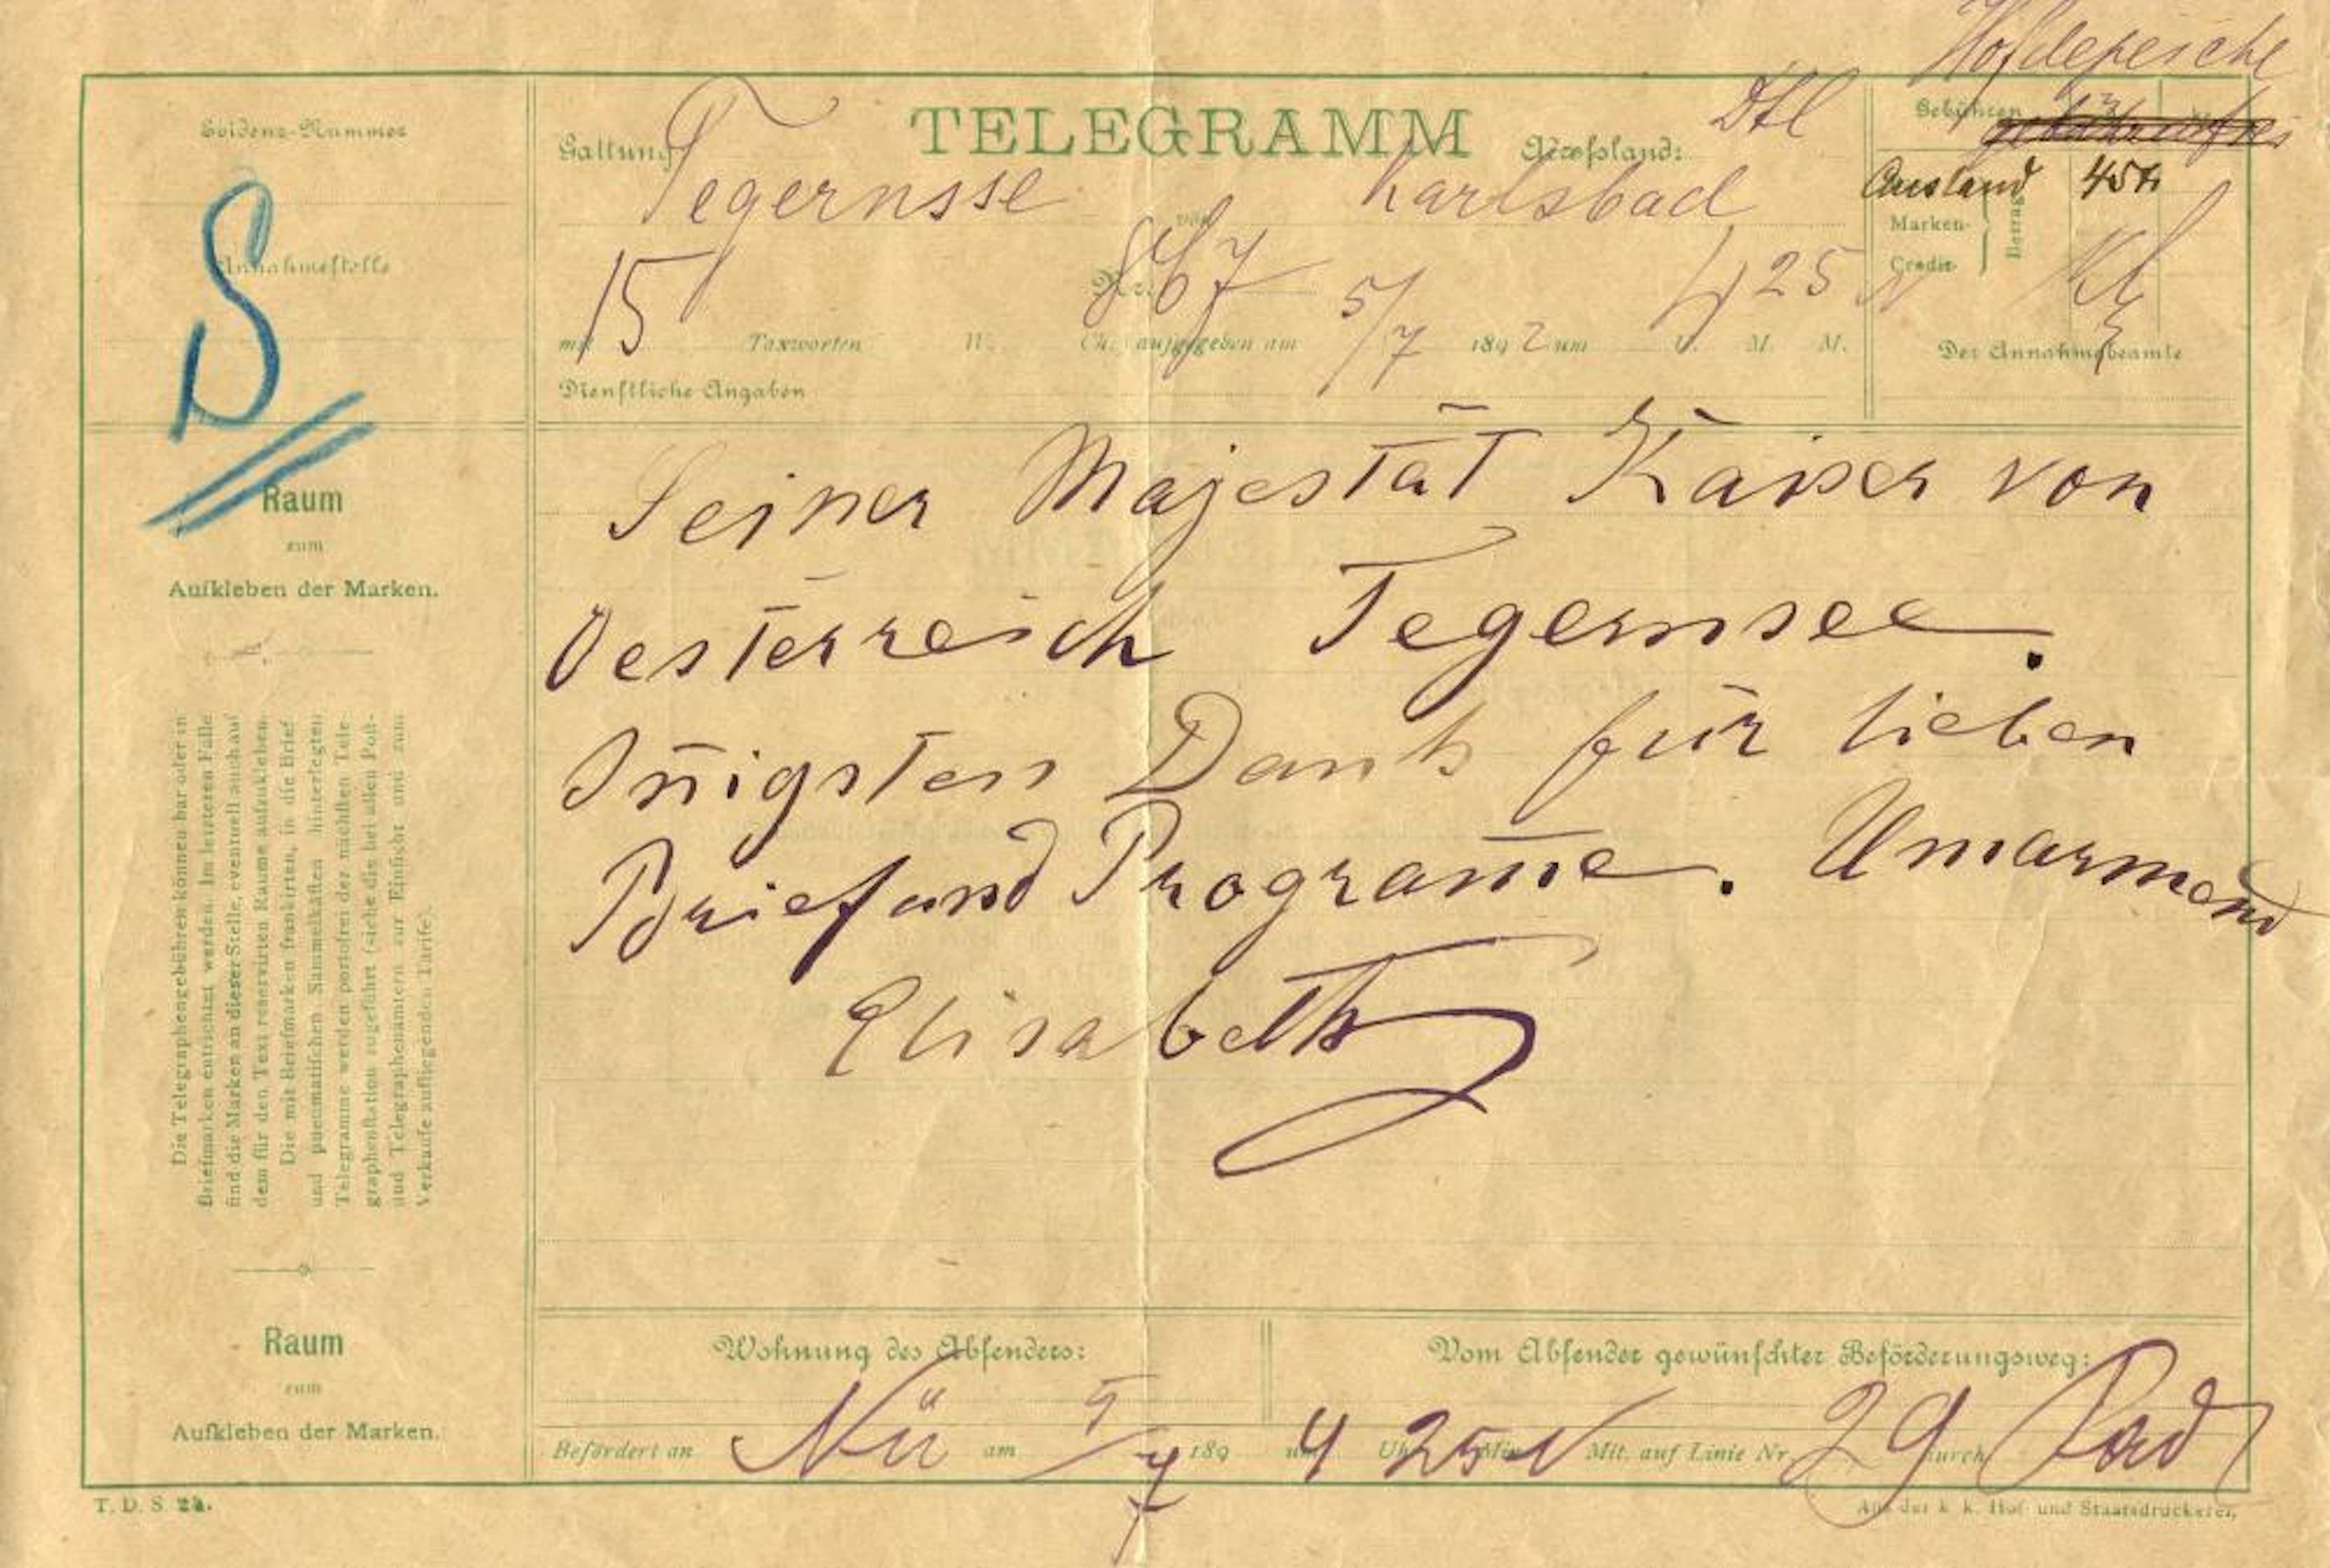 Hofdepesche
Evidenz-Nummer
Annahmestelle
S
Raum
zum
Aufkleben der Marken.
Die Telegraphengebühren können bar oder in
Briefmarken entrichtet werden. Im letzteren Falle
find die Marken an dieser Stelle, eventuell auch auf
dem für den Text reservirten Raume aufzukleben.
Die mit Briefmarken frankirten, in die Brief
und pneumatifchen Sammelkaften hinterlegten
Telegramme werden portofrei der nächften Tele-
graphenftation zugeführt (siehe die bei allen Poft-
und Telegraphenämtern zur Einficht und zum
Verkaufe aufliegenden Tarife).
Raum
zum
Aufkleben der Marken.
TELEGRAMM
Gattung
Adreßland: Dtl
Tegernsse von Karlsbad
Nr. 867
mit 15 Taxworten W. Ch. aufgegeben am 5/7 1892 um 4 U. 25 M. M.
Dienstliche Angaben
Gebühren
gebührenfrei
Ausland 45
Marken-
Credit-
Betrag
Der Annahmebeamte
Seiner Majestät Kaiser von
Oesterreich Tegernsee.
Iñigsten Dank für lieben
Brief und Program̄e. Umarmend
Elisabeth
Wohnung des Absenders:
Vom Absender gewünschter Beförderungsweg:
Befördert an Nü am 5/7 189 um 4 Uhr 25 Min. N Mit. auf Linie Nr. 29 durch
T. D. S. 2a.
Aus der k. k. Hof- und Staatsdruckerei.